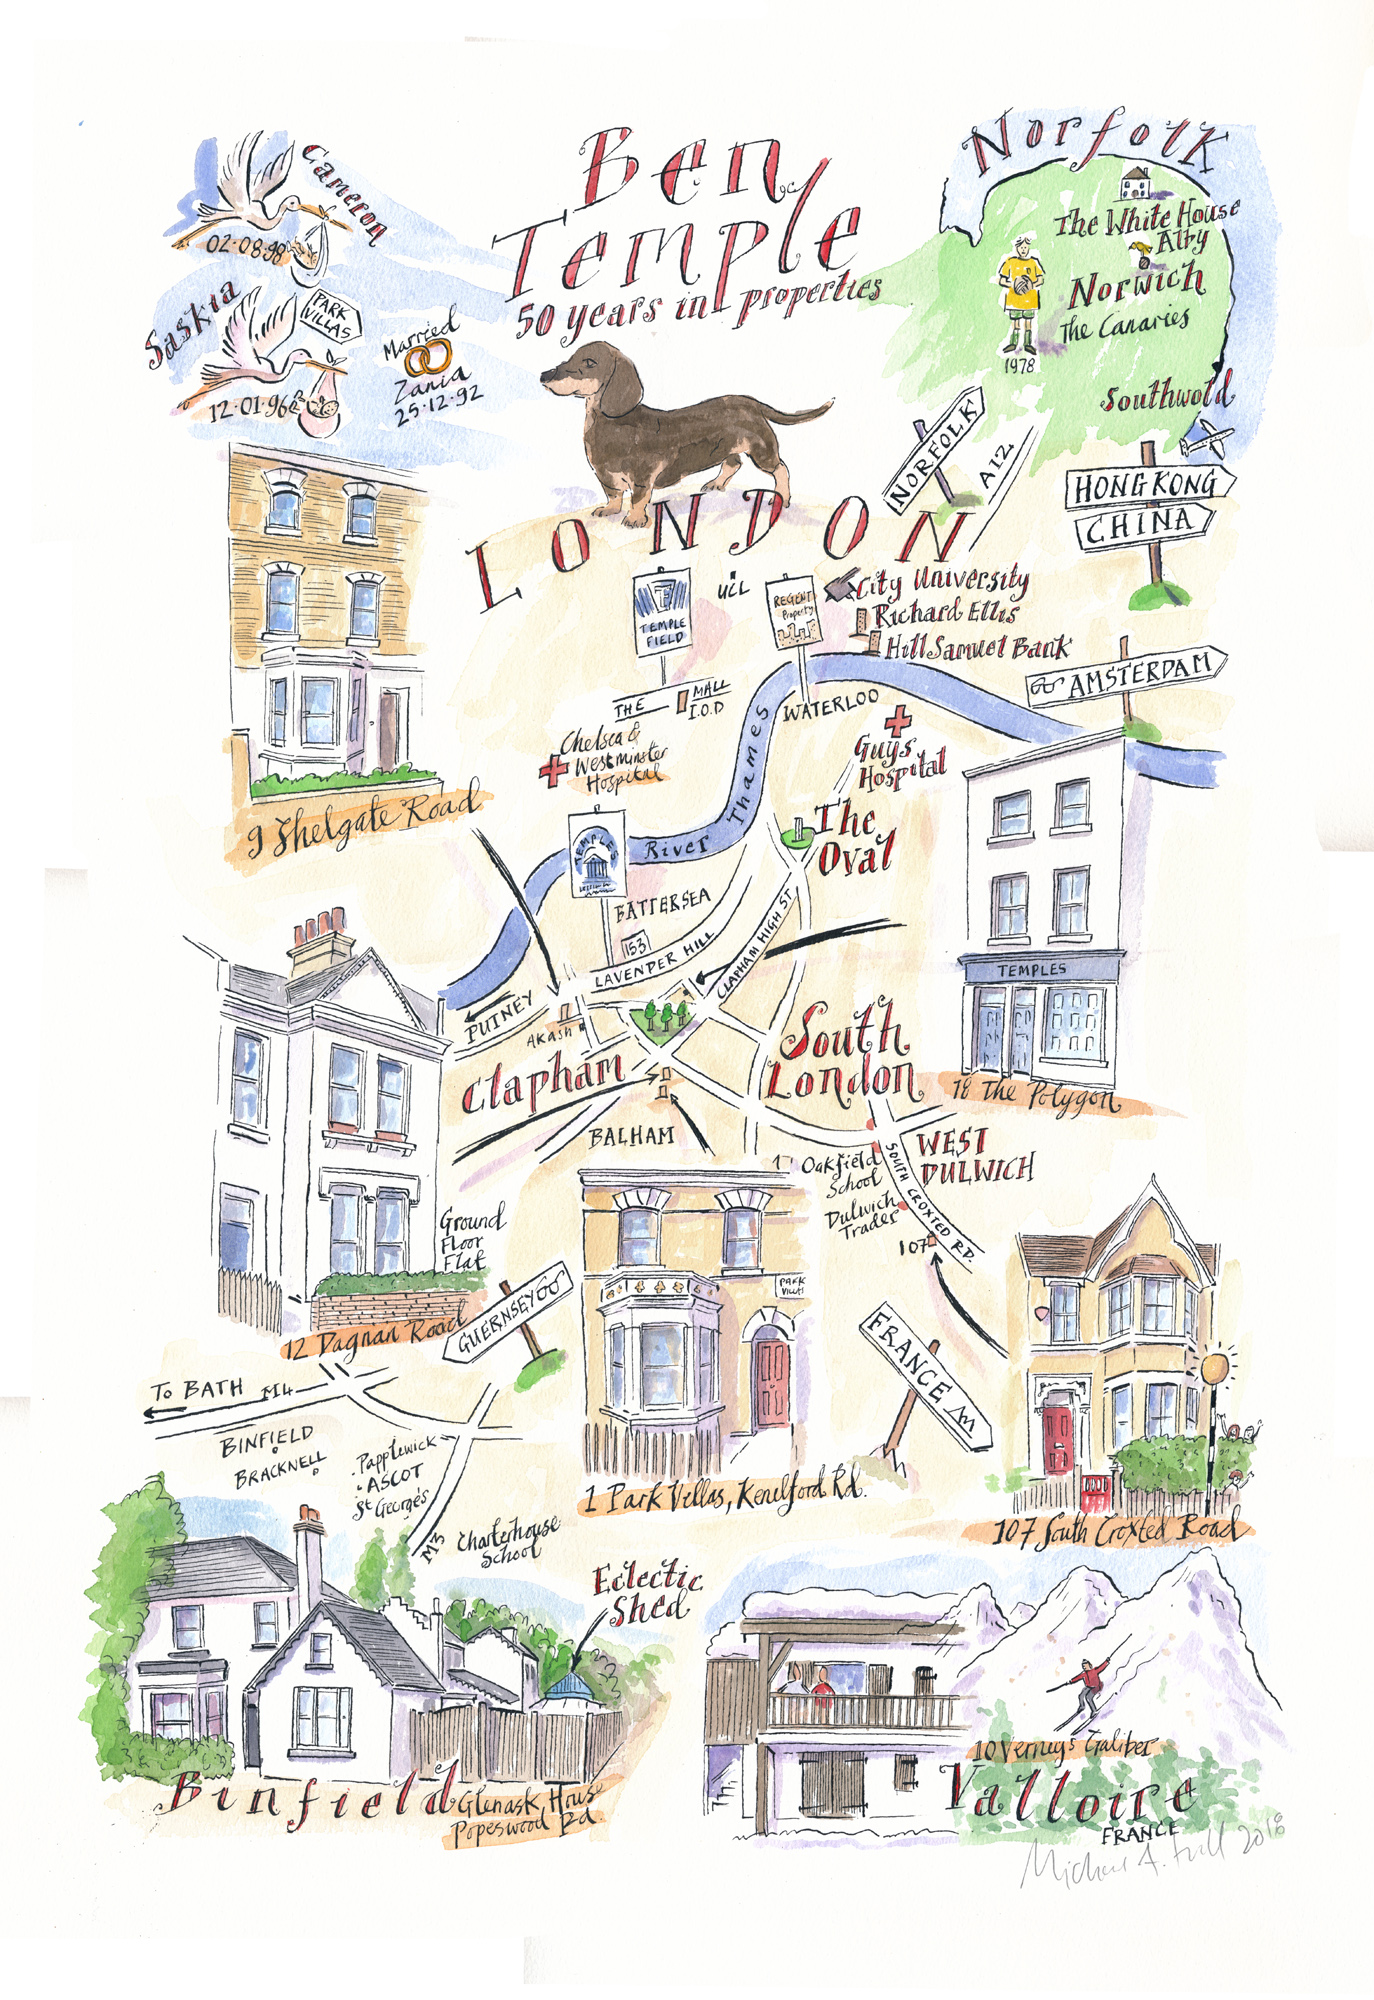 Ben
Temple
50 years in properties
Cameron
02·08·98
Saskia
PARK
VILLAS
12·01·96
Married
Zania
25·12·92
Norfolk
The White House
Alby
Norwich
The Canaries
1978
Southwold
NORFOLK
A12
HONG KONG
CHINA
LONDON
TEMPLE
FIELD
UCL
REGENT
Property
City University
Richard Ellis
Hill Samuel Bank
AMSTERDAM
THE MALL
I.O.D
WATERLOO
Chelsea &
Westminster
Hospital
Guys
Hospital
River Thames
The
Oval
9 Shelgate Road
TEMPLES
BATTERSEA
153
LAVENDER HILL
CLAPHAM HIGH ST
PUTNEY
AKASH
Clapham
South
London
TEMPLES
18 The Polygon
BALHAM
WEST
DULWICH
Oakfield
School
Dulwich
Trader
SOUTH CROXTED RD.
107
Ground
Floor
Flat
12 Dagnan Road
GUERNSEY
PARK
VILLAS
FRANCE
1 Park Villas, Kenelford Rd.
107 South Croxted Road
TO BATH M4
BINFIELD
BRACKNELL
Papplewick
ASCOT
St George's
M3
Charterhouse
School
Eclectic
Shed
Binfield
Glenask House
Popeswood Rd.
10 Verneys Galiber
Valloire
FRANCE
Michael A. Hill 2018